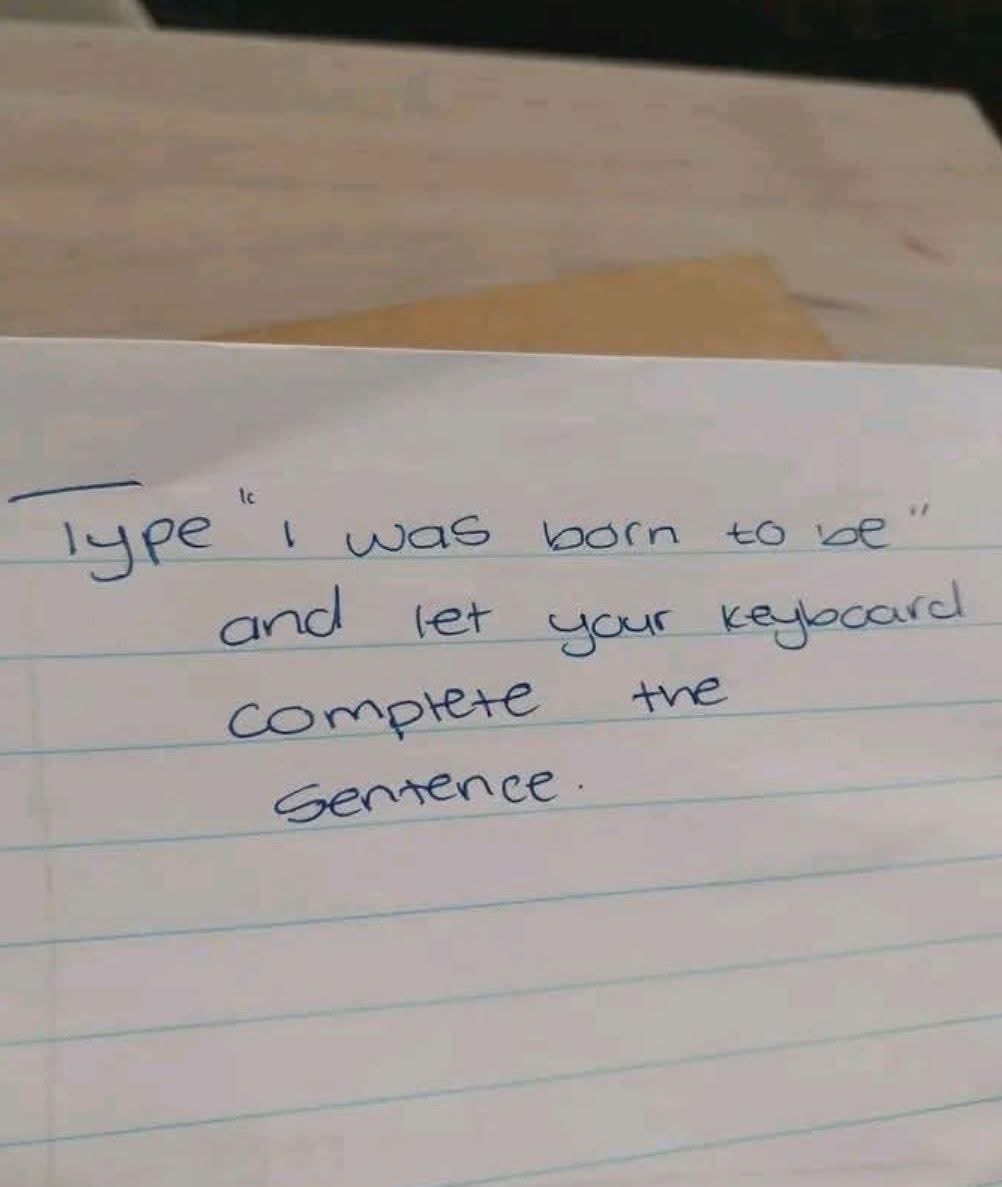 Type "i was born to be"
and let your keyboard
complete the
sentence.